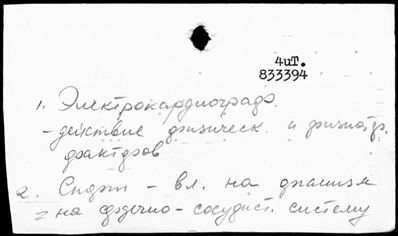 4иТ.
833394
1. Электрокардиография
- действие физическ. и физиотер.
факторов
2. Спорт - вл. на организм
= на сердечно-сосудист. систему